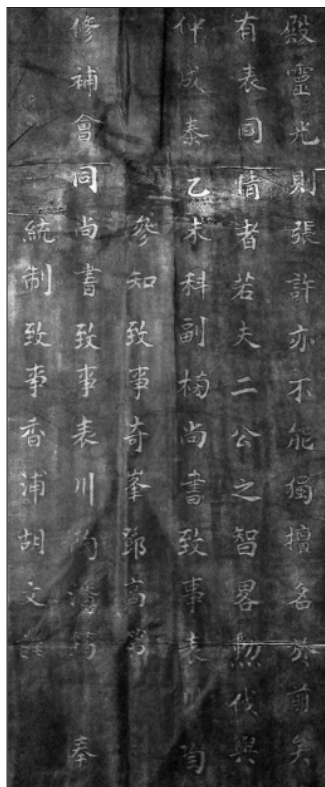 殿靈光則張許亦不能獨擅名於前矣
有表同情者若夫二公之智畧勲伐與
仲成泰乙未科副榜尚書致事表川陶
參知致事奇峯鄧高
修補會同尚書致事表川 奉
統制致事香浦胡文